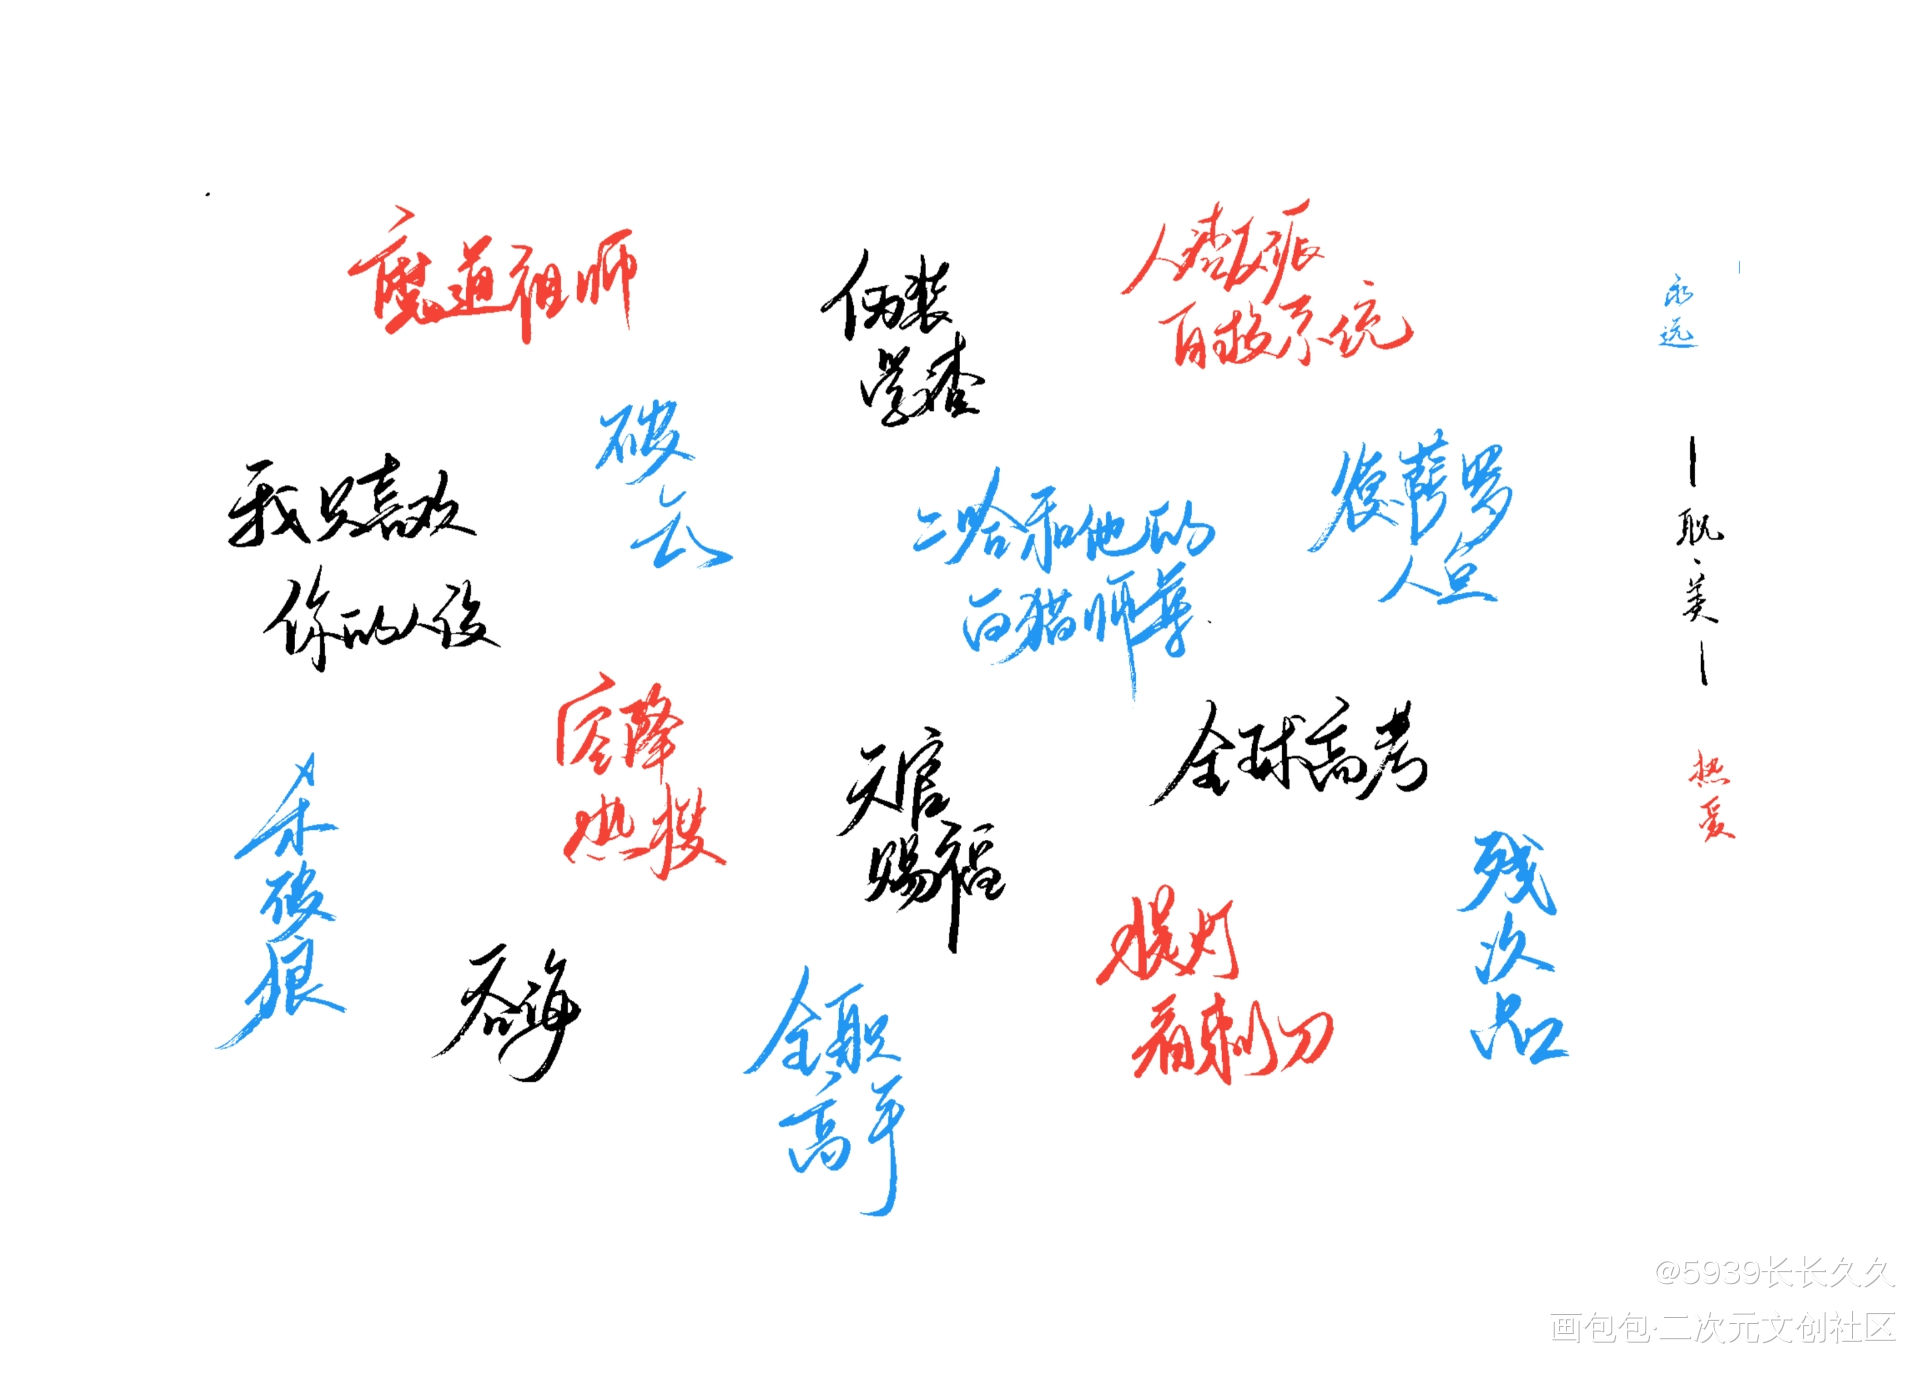 魔道祖师
伪装
学渣
人渣反派
自救系统
破
云
我只喜欢
你的人设
二哈和他的
白猫师尊
復薩罗
人鱼
空降
热搜
天官
赐福
全球高考
杀
破
狼
吞海
全职
高手
提灯
看刺刀
残
次
品
永
远
耽
美
热
爱
@5939长长久久
画包包·二次元文创社区